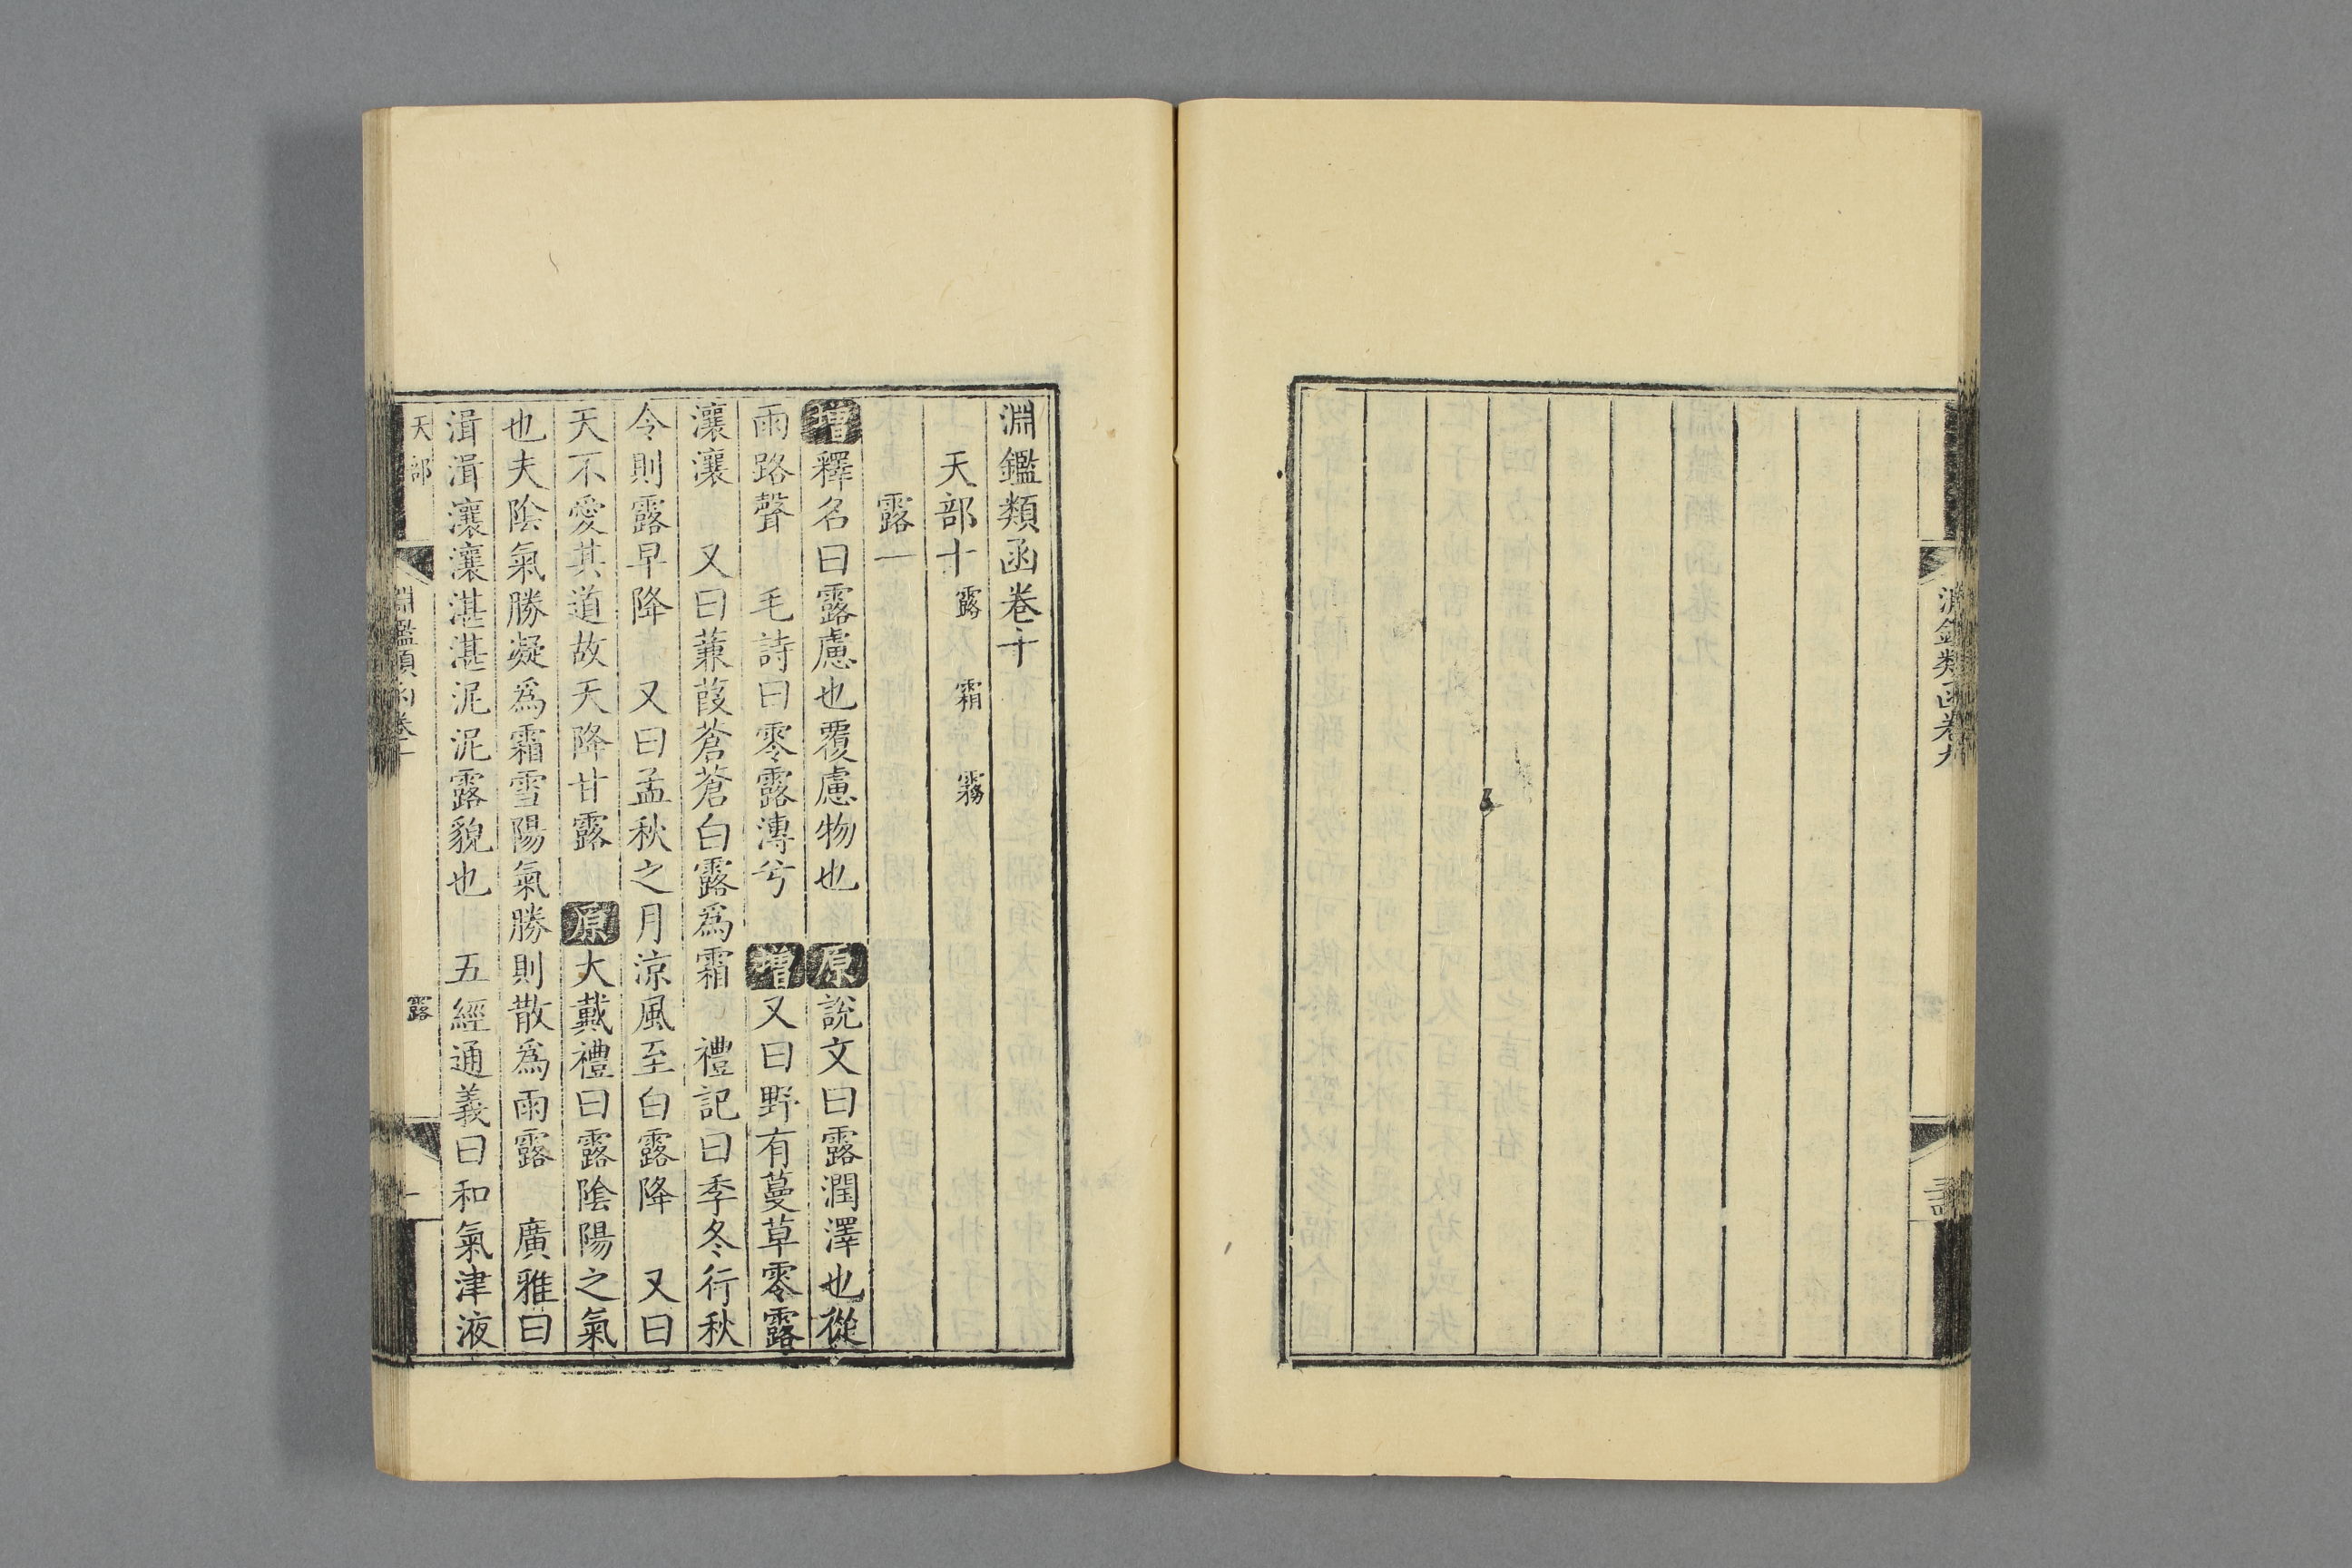 淵鑑類函卷九
淵鑑類函卷十
天部十 露 霜 霧
露一
增釋名曰露慮也覆慮物也 原說文曰露潤澤也從
雨路聲 毛詩曰零露漙兮 增又曰野有蔓草零露
瀼瀼 又曰蒹葭蒼蒼白露爲霜 禮記曰季冬行秋
令則露早降 又曰孟秋之月涼風至白露降 又曰
天不愛其道故天降甘露 原大戴禮曰露陰陽之氣
也夫陰氣勝凝爲霜雪陽氣勝則散爲雨露 廣雅曰
湒湒瀼瀼湛湛泥泥露貌也 五經通義曰和氣津液
天部 淵鑑類函卷十 露 一